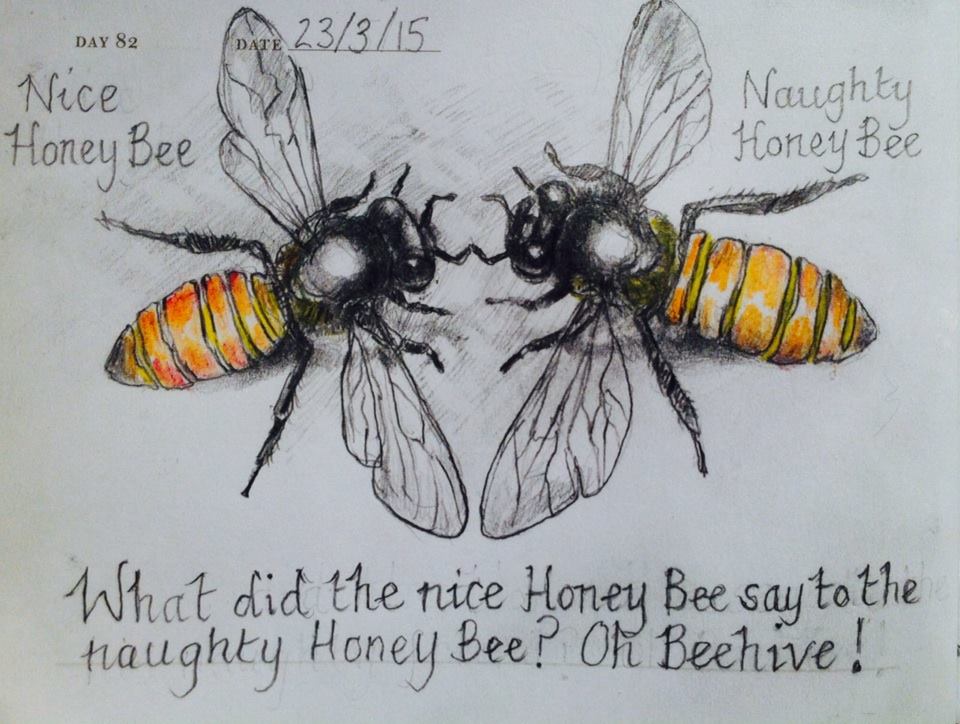 DAY 82
DATE 23/3/15
Nice
Honey Bee
Naughty
Honey Bee
What did the nice Honey Bee say to the
naughty Honey Bee? Oh Beehive!